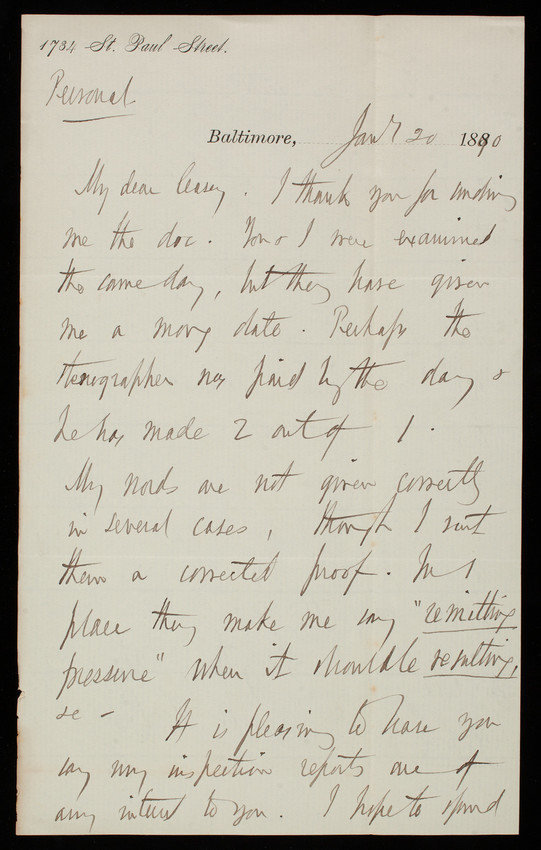 1734 St. Paul Street.
Personal
Baltimore, Jan'y 20 1890
My dear Casey. I thank you for sending
me the doc. You & I were examined
the same day, but they have given
me a wrong date. Perhaps the
stenographer was paid by the day &
he has made 2 out of 1.
My words are not given correctly
in several cases, though I sent
them a corrected proof. In 1
place they make me say "remitting
pressure" when it should be resulting,
&c - It is pleasing to have you
say my inspection reports are of
any interest to you. I hope to spend